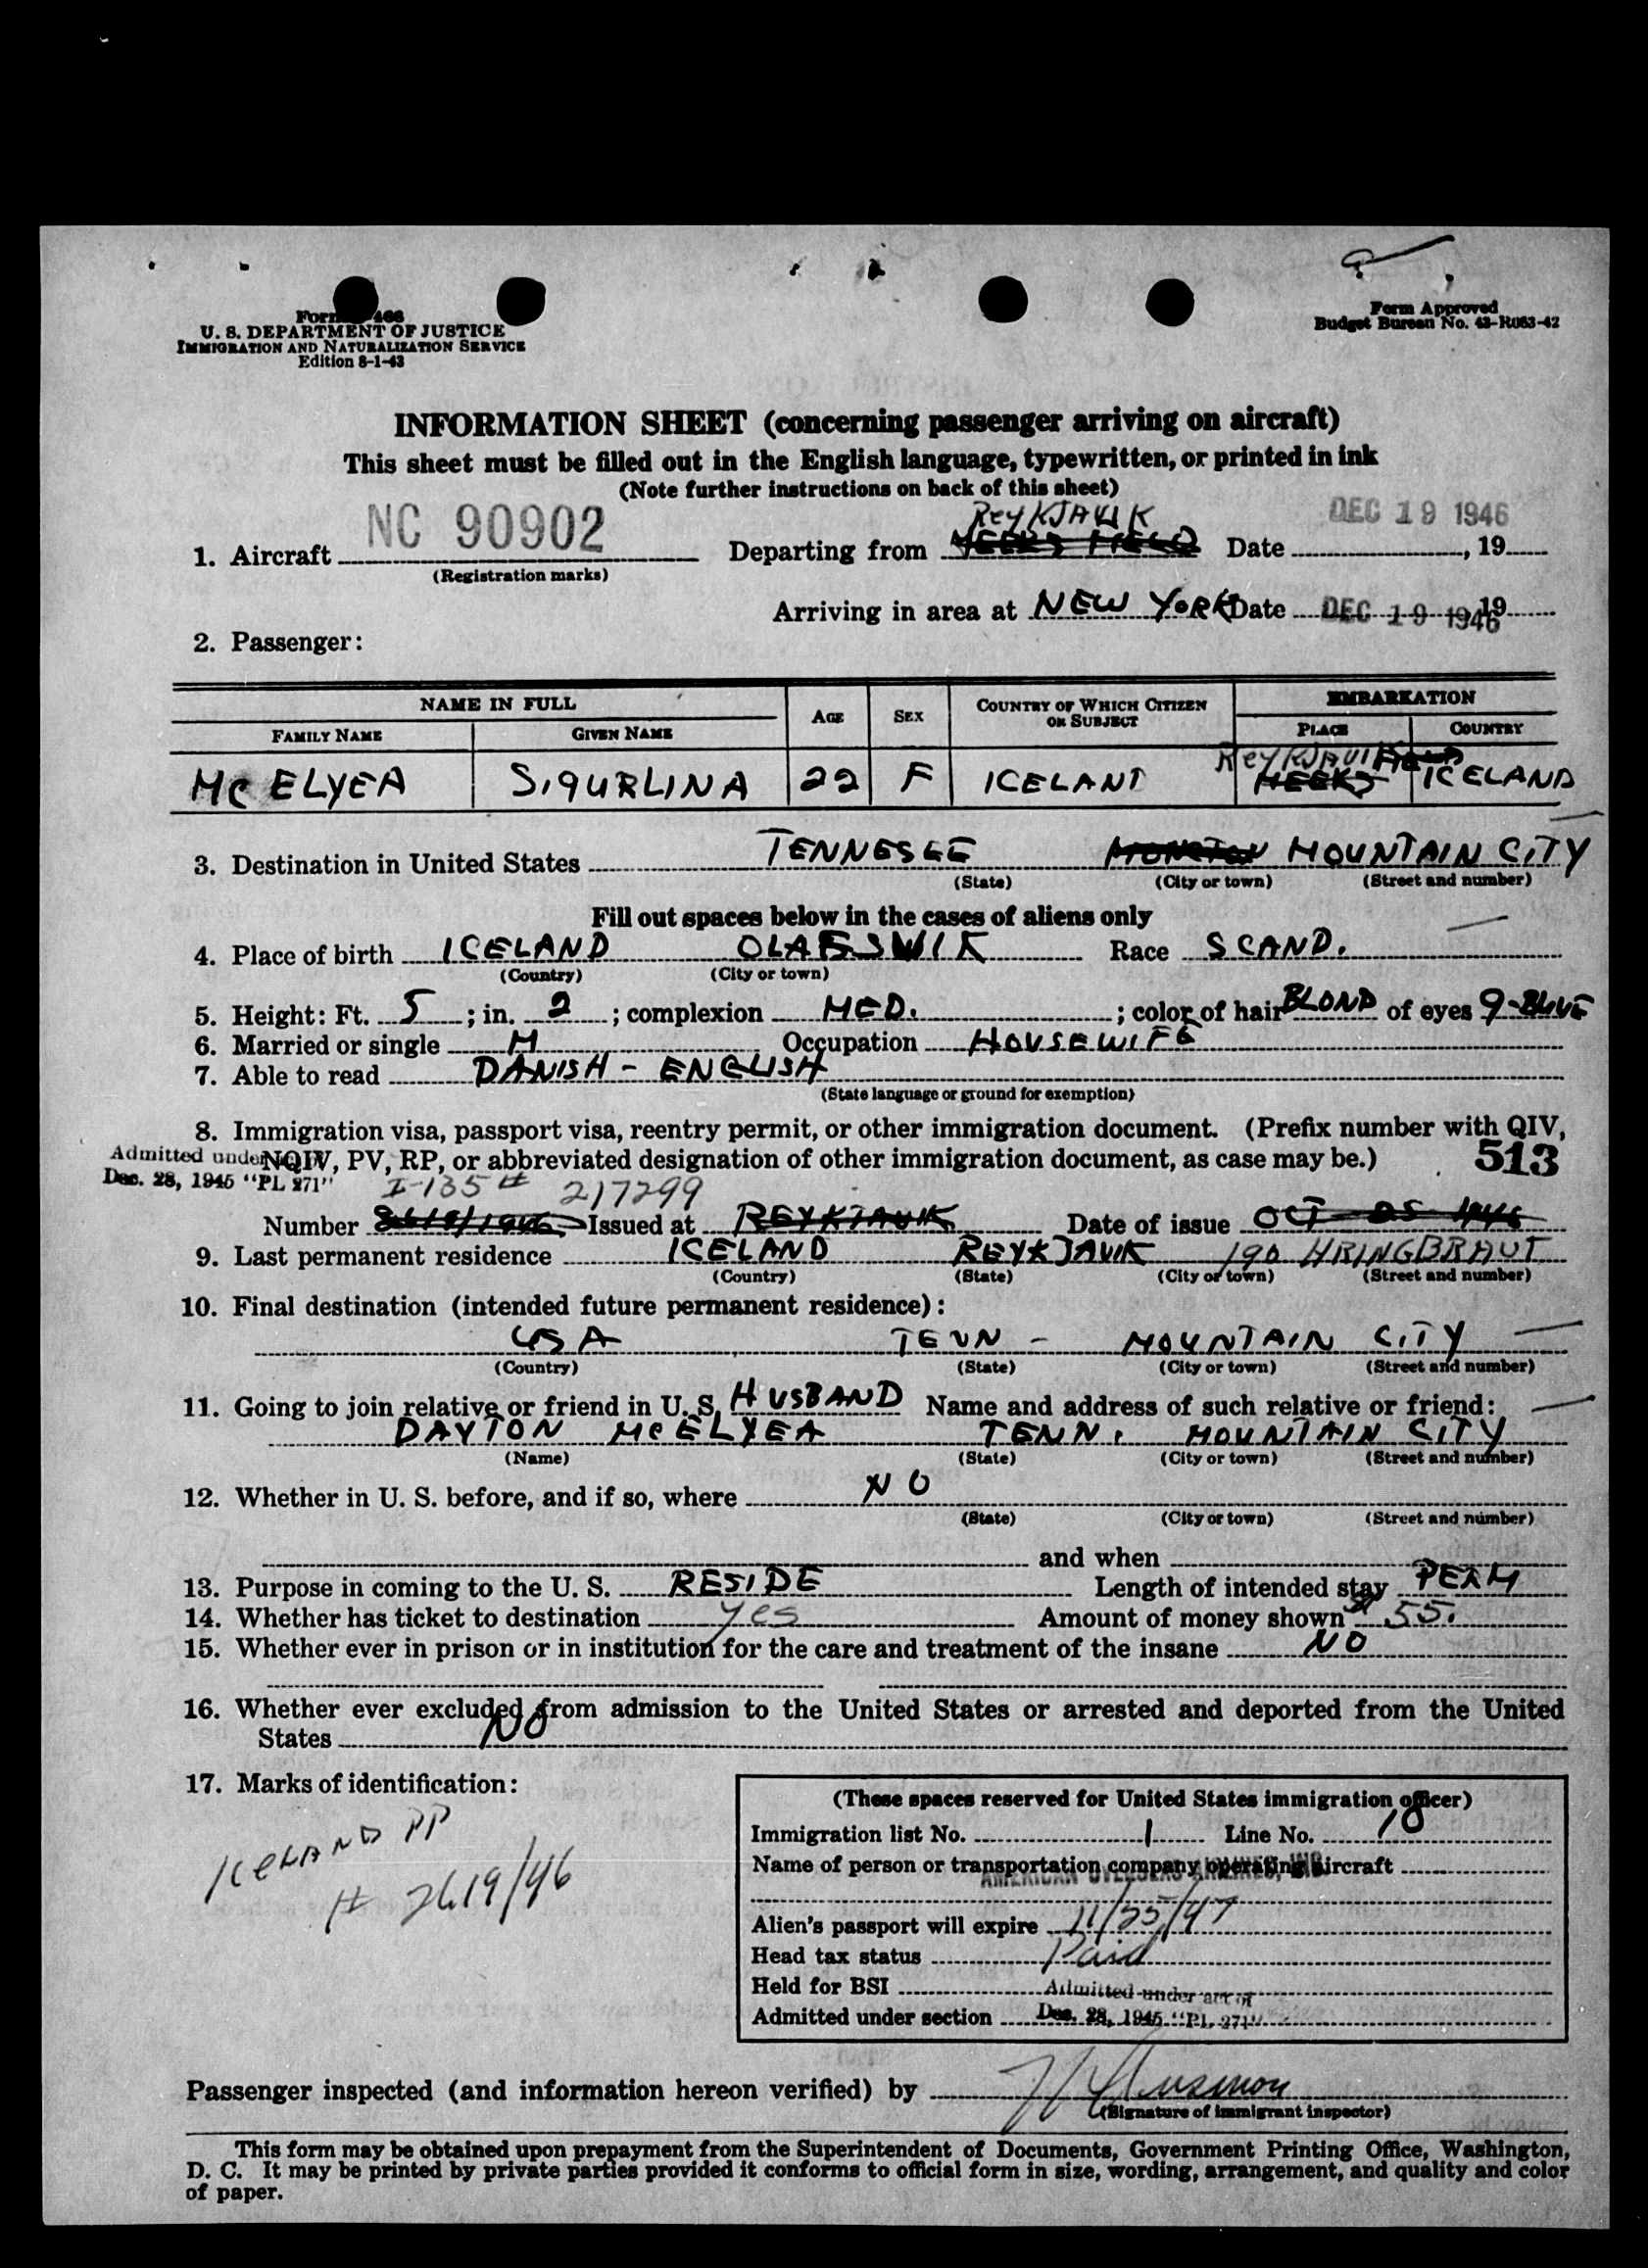 Form 466
U. S. DEPARTMENT OF JUSTICE
IMMIGRATION AND NATURALIZATION SERVICE
Edition 8-1-43
Form Approved
Budget Bureau No. 43-R063-42
INFORMATION SHEET (concerning passenger arriving on aircraft)
This sheet must be filled out in the English language, typewritten, or printed in ink
(Note further instructions on back of this sheet)
1. Aircraft NC 90902 Departing from ReyKJAVIK MEEKS FIELD Date DEC 19 1946, 19
(Registration marks)
Arriving in area at NEW YORK Date DEC 19 1946 19
2. Passenger:
NAME IN FULL AGE SEX COUNTRY OF WHICH CITIZEN OR SUBJECT EMBARKATION
FAMILY NAME GIVEN NAME PLACE COUNTRY
Mc ELYEA SIGURLINA 22 F ICELANT ReyKJAVIK MEEKS ICELAND
3. Destination in United States TENNESEE MOUNTAIN CITY
(State) (City or town) (Street and number)
Fill out spaces below in the cases of aliens only
4. Place of birth ICELAND OLAFSWIK Race SCAND.
(Country) (City or town)
5. Height: Ft. 5; in. 2; complexion MED.; color of hair BLOND of eyes BLUE
6. Married or single M Occupation HOUSEWIFE
7. Able to read DANISH - ENGLISH
(State language or ground for exemption)
8. Immigration visa, passport visa, reentry permit, or other immigration document. (Prefix number with QIV,
NQIV, PV, RP, or abbreviated designation of other immigration document, as case may be.) 513
Admitted under
Dec. 28, 1945 "PL 271"
I-135 # 217299
Number Issued at REYKJAVIK Date of issue OCT 25 1946
9. Last permanent residence ICELAND REYKJAVIK 190 HRINGBRAUT
(Country) (State) (City or town) (Street and number)
10. Final destination (intended future permanent residence):
USA TENN - MOUNTAIN CITY
(Country) (State) (City or town) (Street and number)
11. Going to join relative or friend in U. S. HUSBAND Name and address of such relative or friend:
DAYTON McELYEA TENN. MOUNTAIN CITY
(Name) (State) (City or town) (Street and number)
12. Whether in U. S. before, and if so, where NO
(State) (City or town) (Street and number)
and when
13. Purpose in coming to the U. S. RESIDE Length of intended stay PERM
14. Whether has ticket to destination yes Amount of money shown $55.
15. Whether ever in prison or in institution for the care and treatment of the insane NO
16. Whether ever excluded from admission to the United States or arrested and deported from the United
States NO
17. Marks of identification:
ICELAND PP
# 2619/46
(These spaces reserved for United States immigration officer)
Immigration list No. 1 Line No. 10
Name of person or transportation company operating aircraft
AMERICAN OVERSEAS AIRLINES, INC
Alien's passport will expire 11/25/47
Head tax status Paid
Held for BSI Admitted under act of
Admitted under section Dec. 28, 1945 "PL 271"
Passenger inspected (and information hereon verified) by
(Signature of immigrant inspector)
This form may be obtained upon prepayment from the Superintendent of Documents, Government Printing Office, Washington,
D. C. It may be printed by private parties provided it conforms to official form in size, wording, arrangement, and quality and color
of paper.